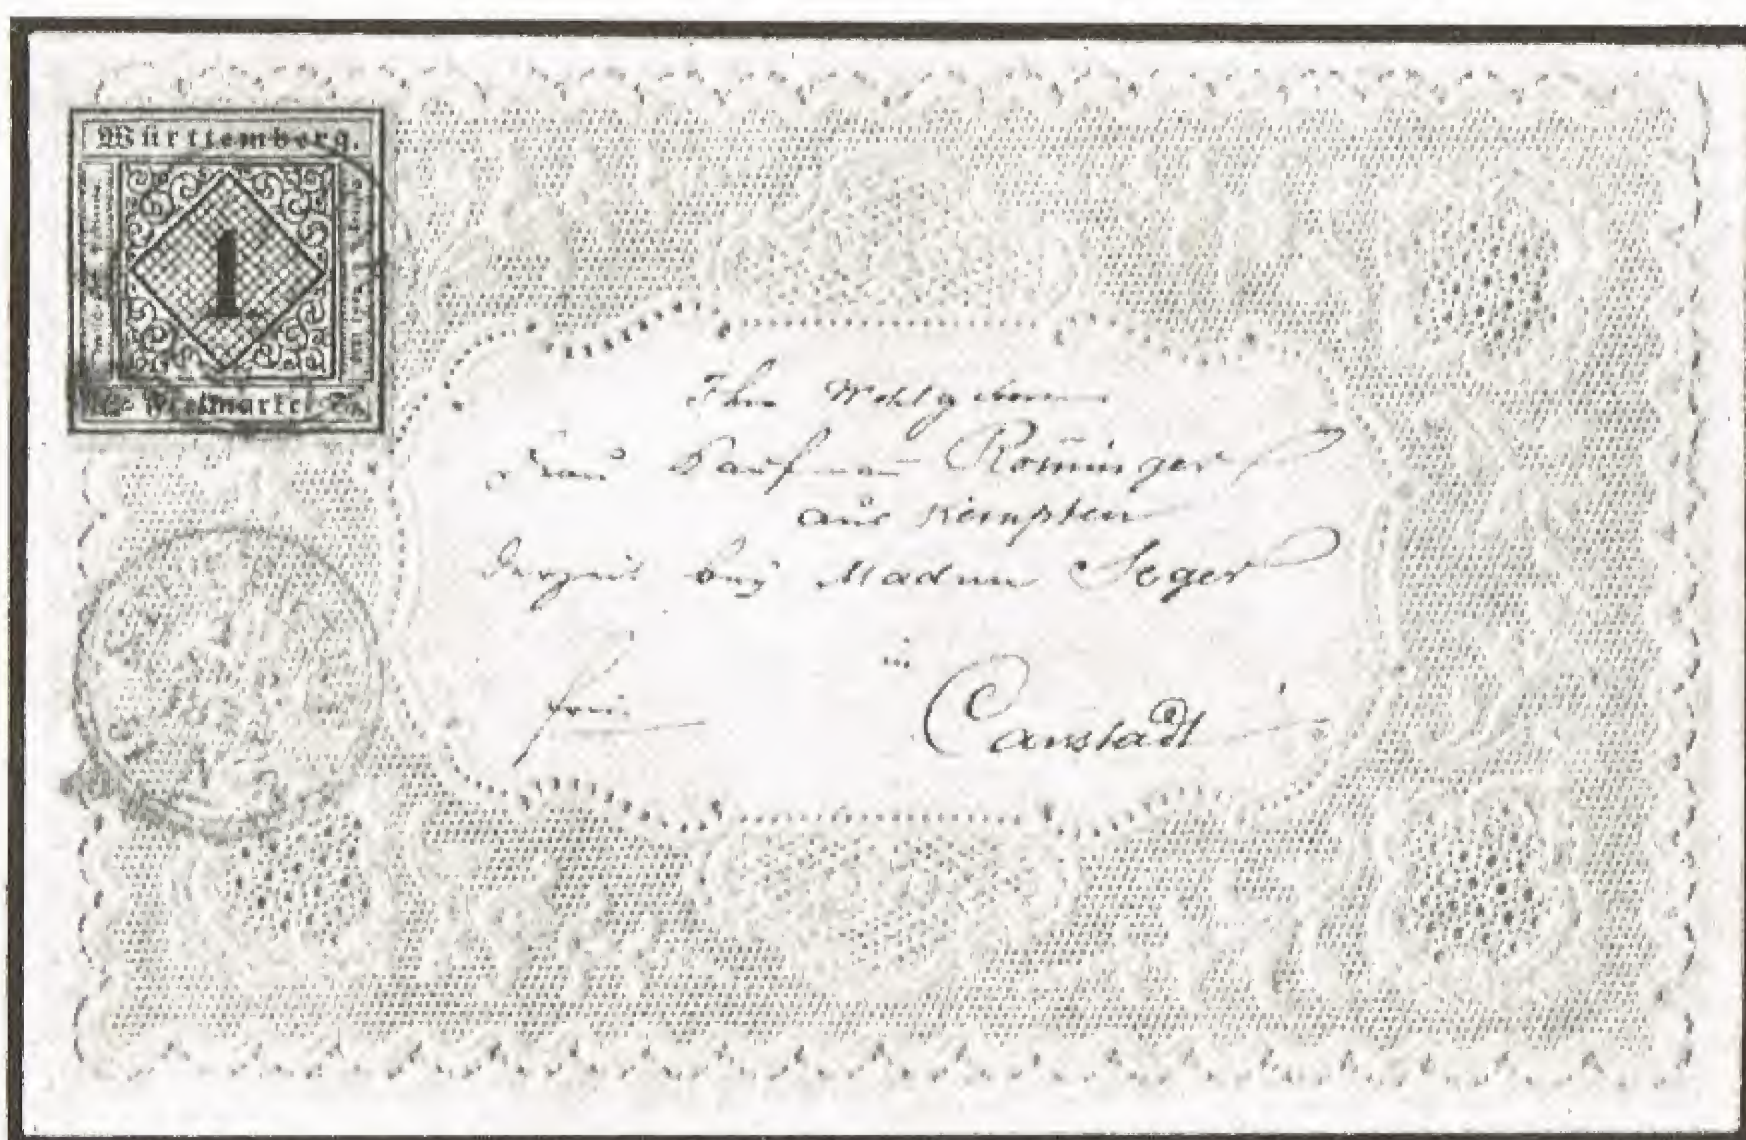 Württemberg.
1
Freimarke
Ihro Wohlgeboren
Frau Kaufmann Römmingerf
aus Kempten
derzeit bey Madam Seger
in
frei
Canstadt